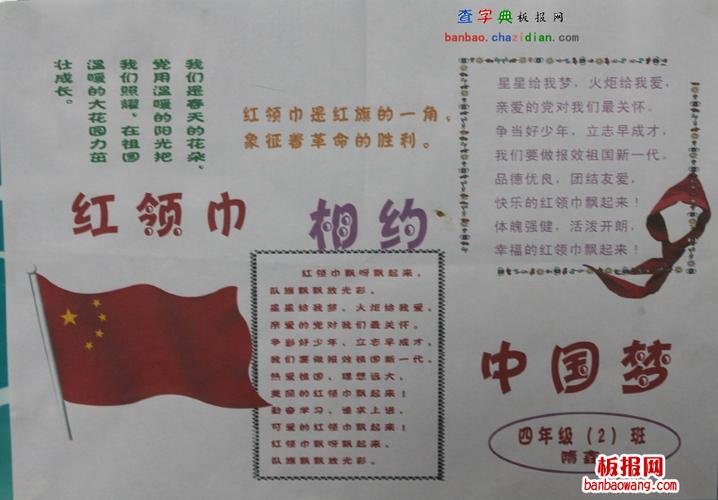 查字典板报网
banbao.chazidian.com
我们是春天的花朵、
党用温暖的阳光把
我们照耀、在祖国
温暖的大花园力茁
壮成长。
红领巾是红旗的一角，
象征着革命的胜利。
星星给我梦，火炬给我爱，
亲爱的党对我们最关怀。
争当好少年，立志早成才，
我们要做报效祖国新一代。
品德优良，团结友爱，
快乐的红领巾飘起来！
体魄强健，活泼开朗，
幸福的红领巾飘起来！
红领巾 相约
中国梦
红领巾飘呀飘起来，
队旗飘飘放光彩。
星星给我梦、火炬给我爱，
亲爱的党对我们最关怀。
争彩好少年、立志早成才，
我们要做报效祖国新一代。
热爱祖国、理想远大，
美丽的红领巾飘起来！
勤奋学习、追求上进，
可爱的红领巾飘起来！
红领巾飘呀飘起来，
队旗飘飘放光彩。
四年级（2）班
隋
板报网
banbaowang.com